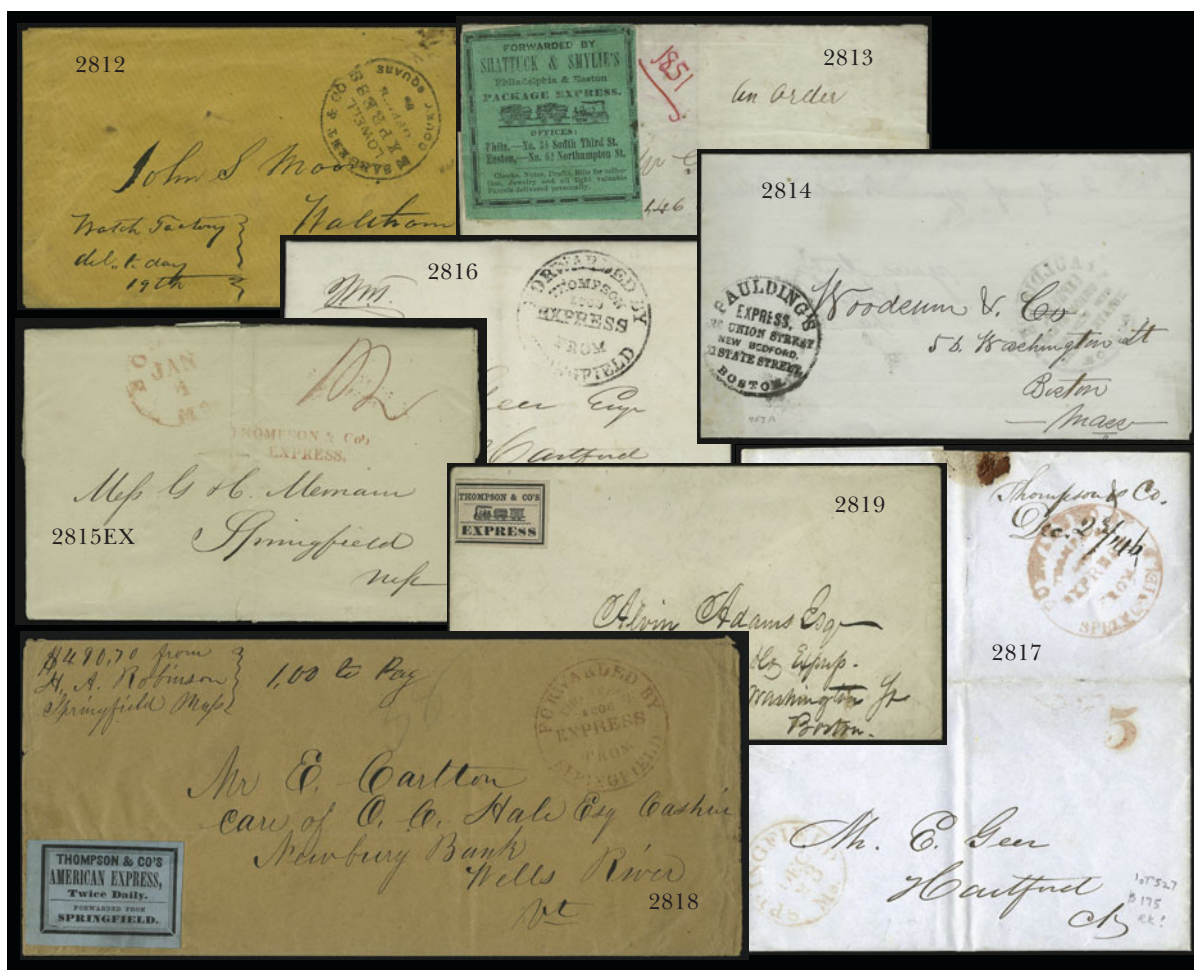 2812
SARGENT & CO'S
LOWELL
EXPRESS
COURT SQUARE
John S Moor
Watch Factory
del. to day
19th
Waltham
FORWARDED BY
SHATTUCK & SMYLIE'S
Philadelphia & Easton
PACKAGE EXPRESS.
OFFICES:
Phila.—No. 34 South Third St.
Easton,—No. 61 Northampton St.
Checks, Notes, Drafts, Bills for collec-
tion, Jewelry and all light valuable
Parcels delivered personally.
1851
2813
An Order
2814
PAULDING'S
EXPRESS.
UNION STREET
NEW BEDFORD.
STATE STREET
BOSTON
Woodsum & Co
56. Washington St
Boston
Mass
2816
FORWARDED BY
THOMPSON
&CO'S
EXPRESS
FROM
SPRINGFIELD
Geer Esqr
Hartford
JAN
Ms
THOMPSON & Co's
EXPRESS.
Mess G & C. Merriam
2815EX
Springfield
Mass
THOMPSON & CO'S
EXPRESS
2819
Alvin Adams Esq
Washington St
Boston.
Thompson & Co.
Dec. 23/46
FORWARDED BY
EXPRESS
FROM
SPRINGFIELD
2817
5
SPRINGFIELD
DEC
Ms.
Mr. E. Geer
Hartford
Ct
lot 527
$175
$490,70 from
H. A. Robinson
Springfield Mass
1,00 to Pay
FORWARDED BY
THOMPSON
&CO'S
EXPRESS
FROM
SPRINGFIELD
Mr E. Carlton
care of O. C. Hale Esq Cashier
Newbury Bank
Wells River
Vt
2818
THOMPSON & CO'S
AMERICAN EXPRESS,
Twice Daily.
FORWARDED FROM
SPRINGFIELD.